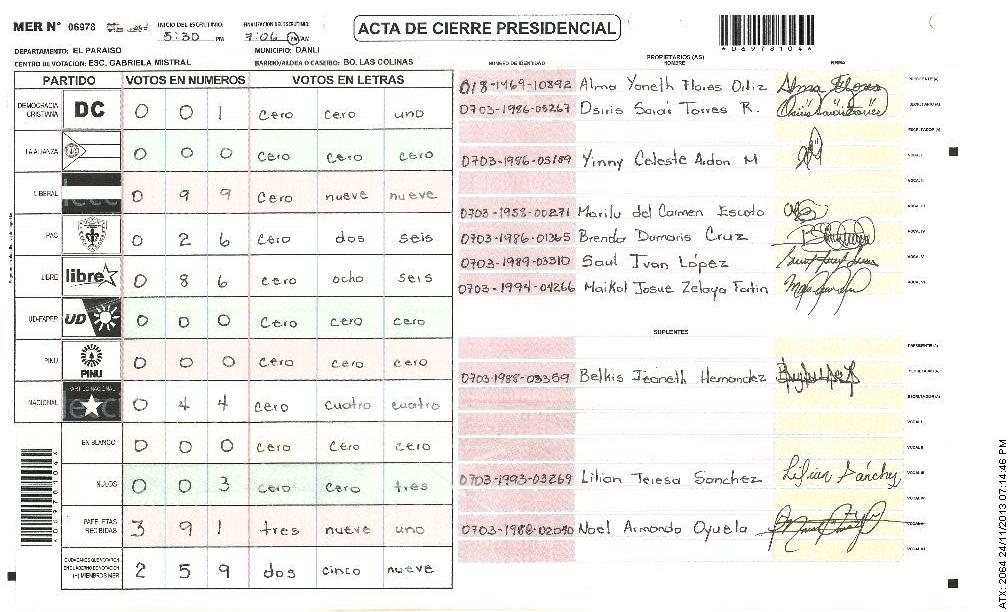 ACTA DE CIERRE PRESIDENCIAL
MER N° 06978 INICIO DEL ESCRUTINIO: 5:30 PM FINALIZACION DEL ESCRUTINIO: 7:06 PM/AM
DEPARTAMENTO: EL PARAISO MUNICIPIO: DANLI
CENTRO DE VOTACION: ESC. GABRIELA MISTRAL BARRIO/ALDEA O CASERIO: BO. LAS COLINAS
PARTIDO VOTOS EN NUMEROS VOTOS EN LETRAS
DEMOCRACIA CRISTIANA DC 0 0 1 cero cero uno
LA ALIANZA 0 0 0 cero cero cero
LIBERAL 0 9 9 cero nueve nueve
PAC 0 2 6 cero dos seis
LIBRE libre 0 8 6 cero ocho seis
UD-FAPER UD 0 0 0 cero cero cero
PINU PINU 0 0 0 cero cero cero
NACIONAL PARTIDO NACIONAL 0 4 4 cero cuatro cuatro
EN BLANCO 0 0 0 cero cero cero
NULOS 0 0 3 cero cero tres
PAPELETAS RECIBIDAS 3 9 1 tres nueve uno
CIUDADANOS QUE VOTARON EN CUADERNO DE VOTACION (+) MIEMBROS MER 2 5 9 dos cinco nueve
PROPIETARIOS (AS)
NUMERO DE IDENTIDAD NOMBRE FIRMA
Alma Yaneth Flores Ortiz PRESIDENTE(A)
0703-1986-05267 Osiris Sarai Torres R. SECRETARIO(A)
ESCRUTADOR(A)
0703-1986-03189 Yinny Celeste Aidon M VOCAL I
0703-1958-00271 Marilu del Carmen Escoto VOCAL III
0703-1986-01365 Brenda Damaris Cruz VOCAL IV
0703-1989-03310 Saul Ivan López VOCAL V
0703-1994-04266 Maikol Josue Zelaya Fortin VOCAL VI
SUPLENTES
PRESIDENTE(A)
0703-1988-03359 Belkis Jeaneth Hernandez
VOCAL I
VOCAL II
0703-1993-03269 Lilian Teresa Sanchez Lilian Sánchez VOCAL III
VOCAL IV
0703-1988-02090 Noel Armando Oyuela VOCAL V
VOCAL VI
ATX: 2064 24/11/2013 07:14:46 PM